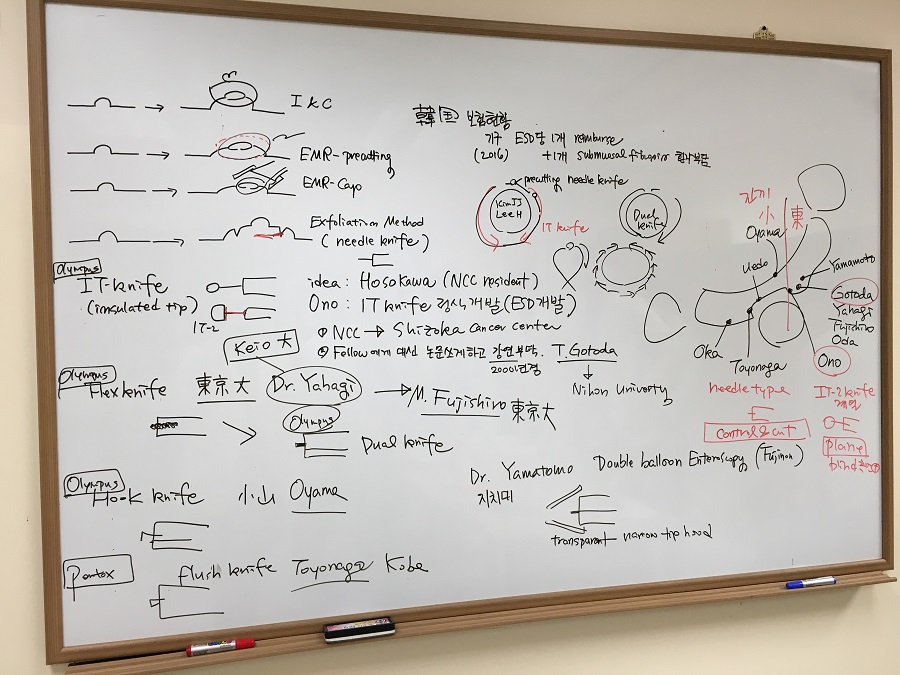 IKC
EMR-precutting
EMR-Cap
Exfoliation Method
(needle knife)
韓国 보험현황
기구 ESD당 1개 reimburse
(2016) +1개 submucosal
precutting needle knife
Kim JJ
Lee H
IT knife
Dual
knife
Olympus
IT-knife
(insulated tip)
IT-2
idea: Hosokawa (NCC resident)
Ono: IT knife 정식개발 (ESD개발)
① NCC → Shizoka cancer center
② Follow에게 대신 논문쓰게하고 강연부탁. T. Gotoda
2000년경
Nihon University
Keio 大
Olympus
Flex knife 東京大 Dr. Yahagi → M. Fujishiro 東京大
Olympus
Dual knife
Olympus
Hook knife 小山 Oyama
Pentax
flush knife Toyonaga Kobe
Dr. Yamatomo Double balloon Enteroscopy (Fujinon)
지치대
transparent narrow tip hood
小 東
Oyama
Uedo
Yamamoto
Gotoda
Yahagi
Fujishiro
Oda
Ono
Oka
Toyonaga
needle type
control & cut
IT-2 knife
계열
plane
blind